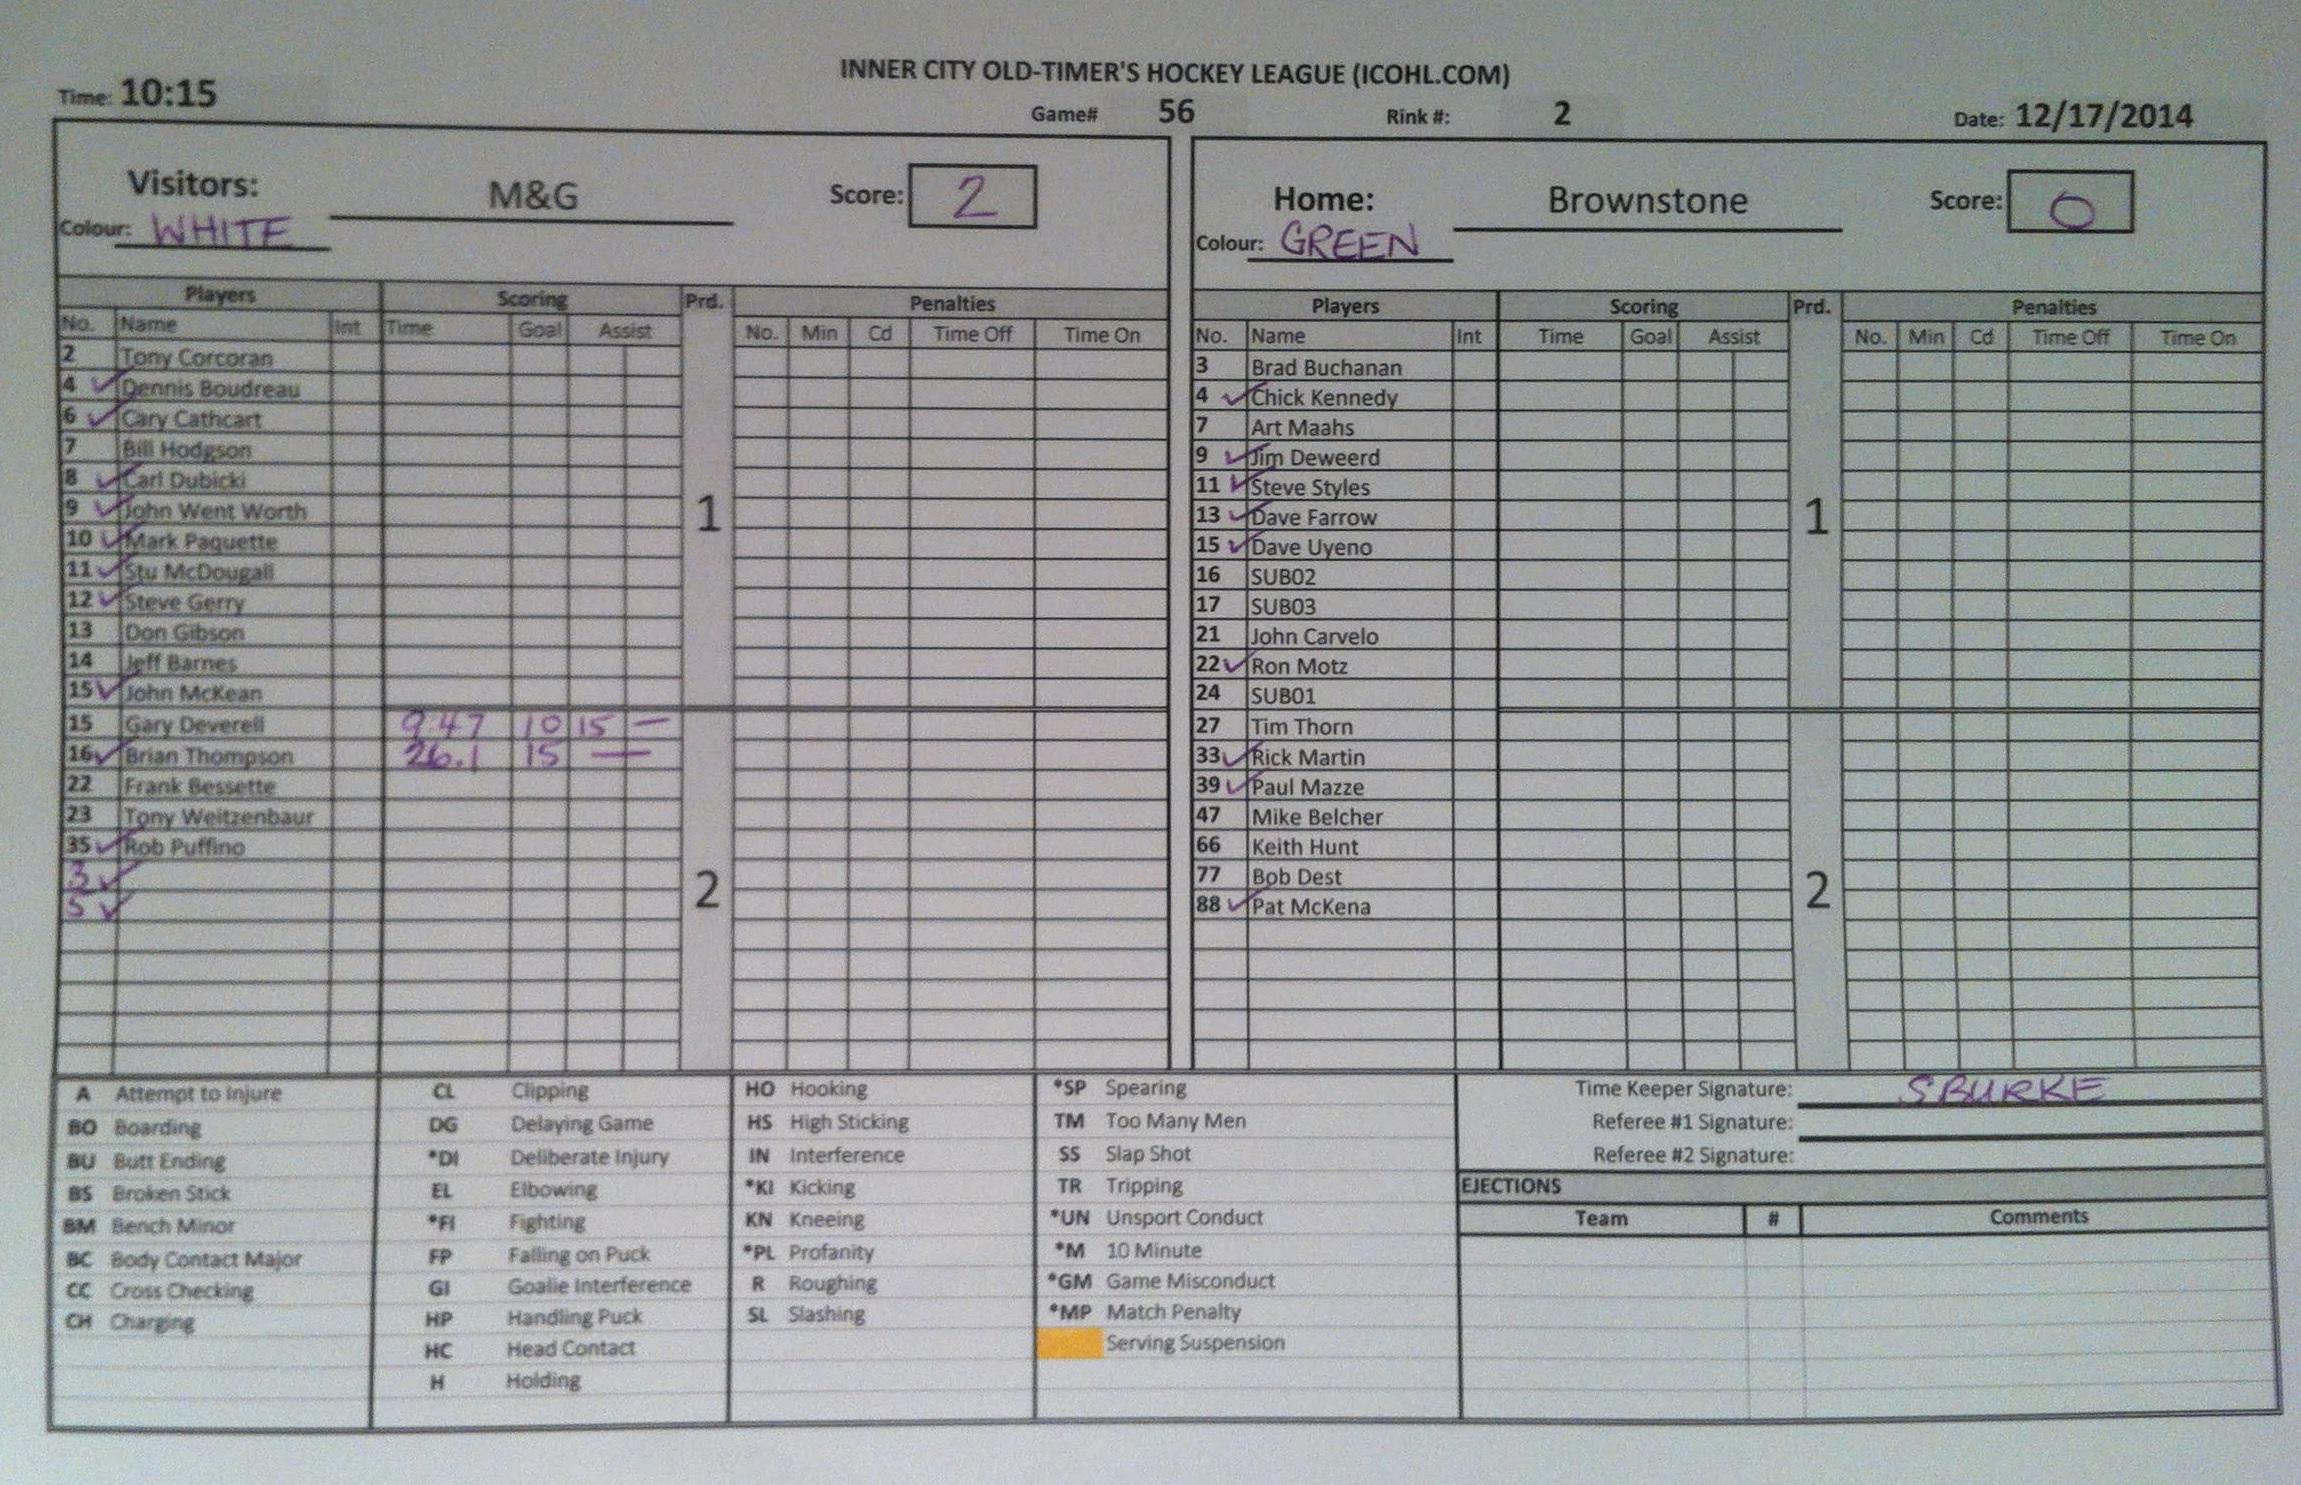 INNER CITY OLD-TIMER'S HOCKEY LEAGUE (ICOHL.COM)
Time: 10:15 Game# 56 Rink #: 2 Date: 12/17/2014
Visitors: M&G Score: 2
Colour: WHITE
Players Scoring Prd. Penalties
No. Name Int Time Goal Assist No. Min Cd Time Off Time On
2 Tony Corcoran
4 ✓ Dennis Boudreau
6 ✓ Cary Cathcart
7 Bill Hodgson
8 ✓ Carl Dubicki
9 ✓ John Went Worth
1
10 ✓ Mark Paquette
11 ✓ Stu McDougall
12 ✓ Steve Gerry
13 Don Gibson
14 Jeff Barnes
15 ✓ John McKean
15 Gary Deverell 9:47 10 15 —
16 ✓ Brian Thompson 26.1 15 —
22 Frank Bessette
23 Tony Weitzenbaur
35 ✓ Rob Puffino
3 ✓
2
5 ✓
Home: Brownstone Score: 0
Colour: GREEN
Players Scoring Prd. Penalties
No. Name Int Time Goal Assist No. Min Cd Time Off Time On
3 Brad Buchanan
4 ✓ Chick Kennedy
7 Art Maahs
9 ✓ Jim Deweerd
11 ✓ Steve Styles
13 ✓ Dave Farrow
1
15 ✓ Dave Uyeno
16 SUB02
17 SUB03
21 John Carvelo
22 ✓ Ron Motz
24 SUB01
27 Tim Thorn
33 ✓ Rick Martin
39 ✓ Paul Mazze
47 Mike Belcher
66 Keith Hunt
77 Bob Dest
2
88 ✓ Pat McKena
A Attempt to Injure
BO Boarding
BU Butt Ending
BS Broken Stick
BM Bench Minor
BC Body Contact Major
CC Cross Checking
CH Charging
CL Clipping
DG Delaying Game
*DI Deliberate Injury
EL Elbowing
*FI Fighting
FP Falling on Puck
GI Goalie Interference
HP Handling Puck
HC Head Contact
H Holding
HO Hooking
HS High Sticking
IN Interference
*KI Kicking
KN Kneeing
*PL Profanity
R Roughing
SL Slashing
*SP Spearing
TM Too Many Men
SS Slap Shot
TR Tripping
*UN Unsport Conduct
*M 10 Minute
*GM Game Misconduct
*MP Match Penalty
Serving Suspension
Time Keeper Signature: S BURKE
Referee #1 Signature:
Referee #2 Signature:
EJECTIONS
Team # Comments